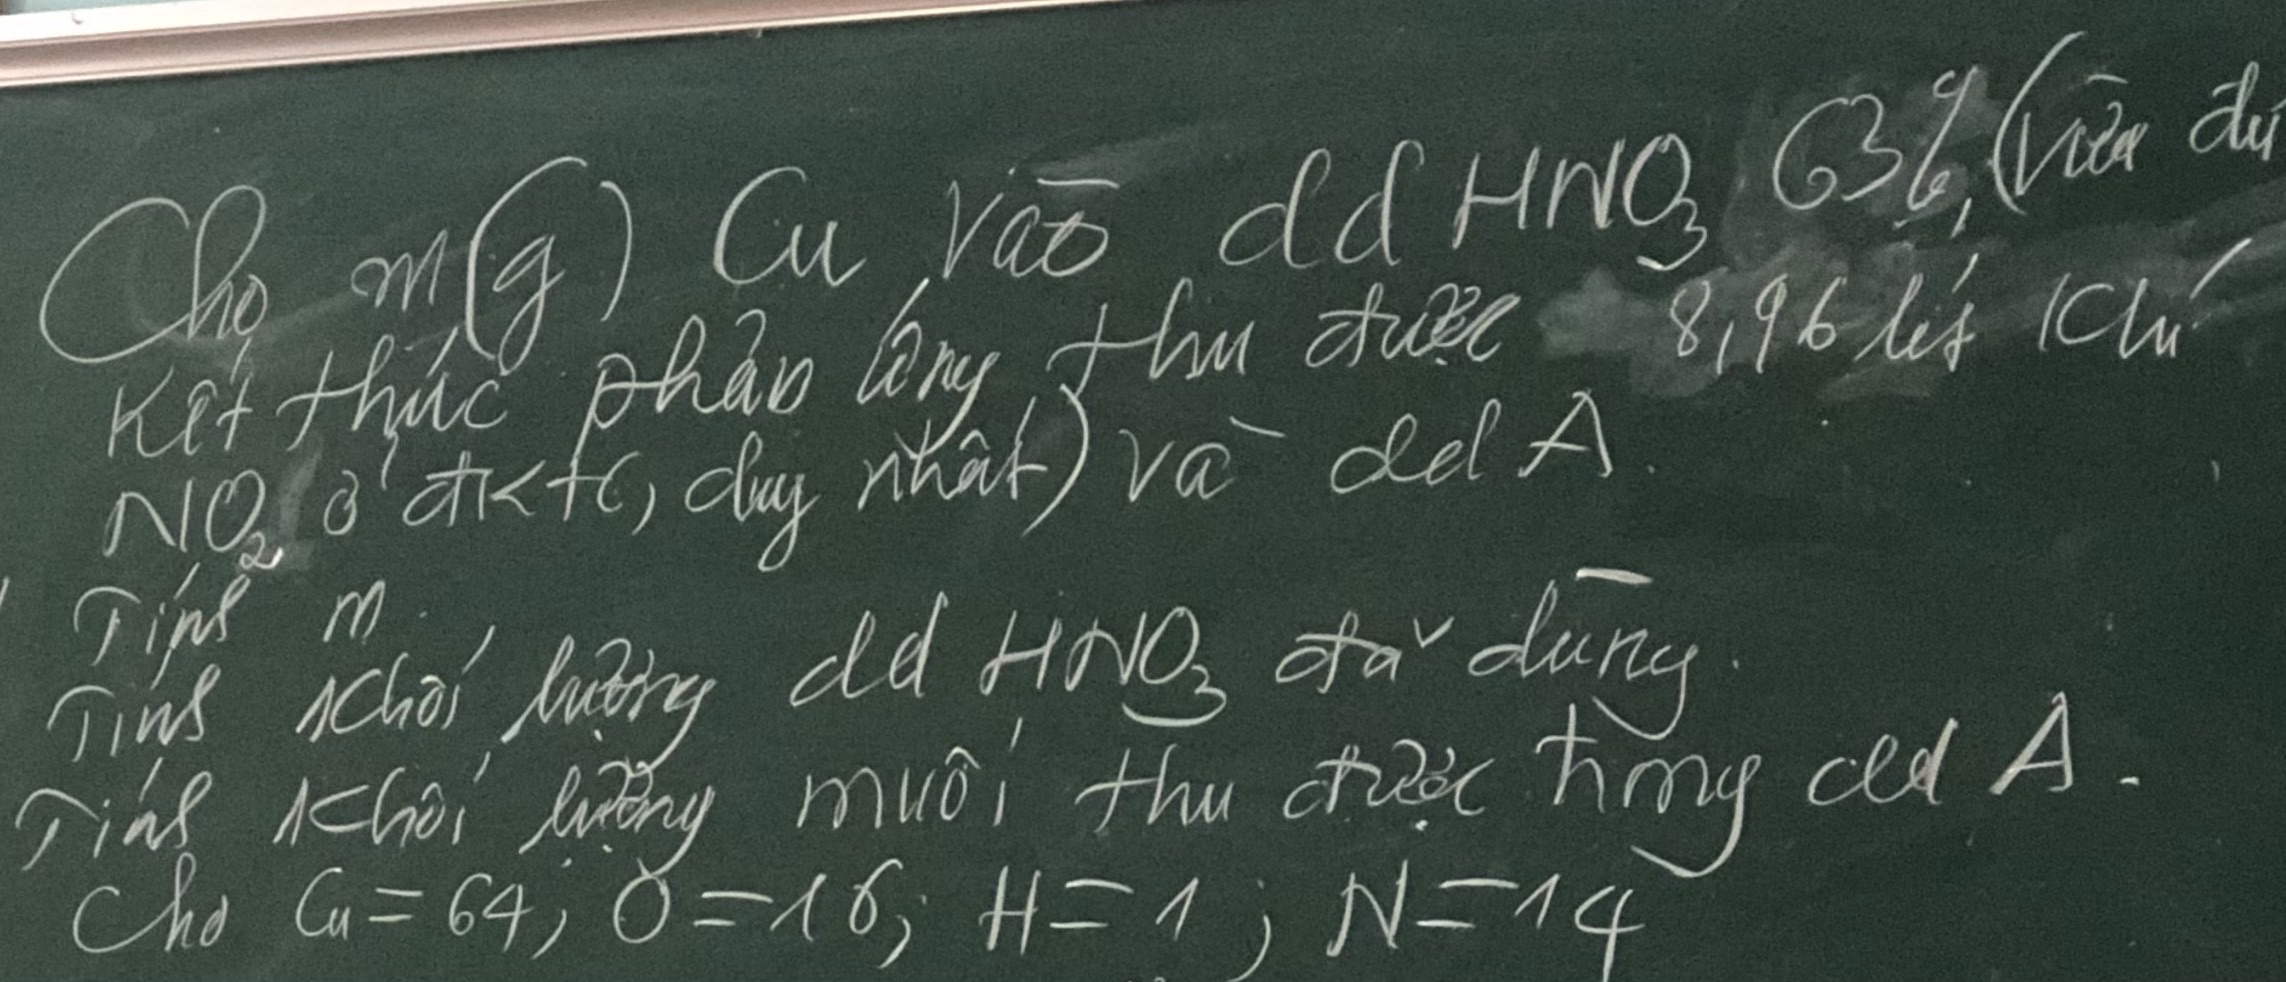 Cho m(g) Cu vào dd HNO3 63%, (vừa đủ
Kết thúc phản ứng thu được 8,96 lít khí
NO2 ở đktc, duy nhất) và dd A.
Tính m.
Tính khối lượng dd HNO3 đã dùng.
Tính khối lượng muối thu được trong dd A.
Cho Cu = 64; O = 16; H = 1; N = 14